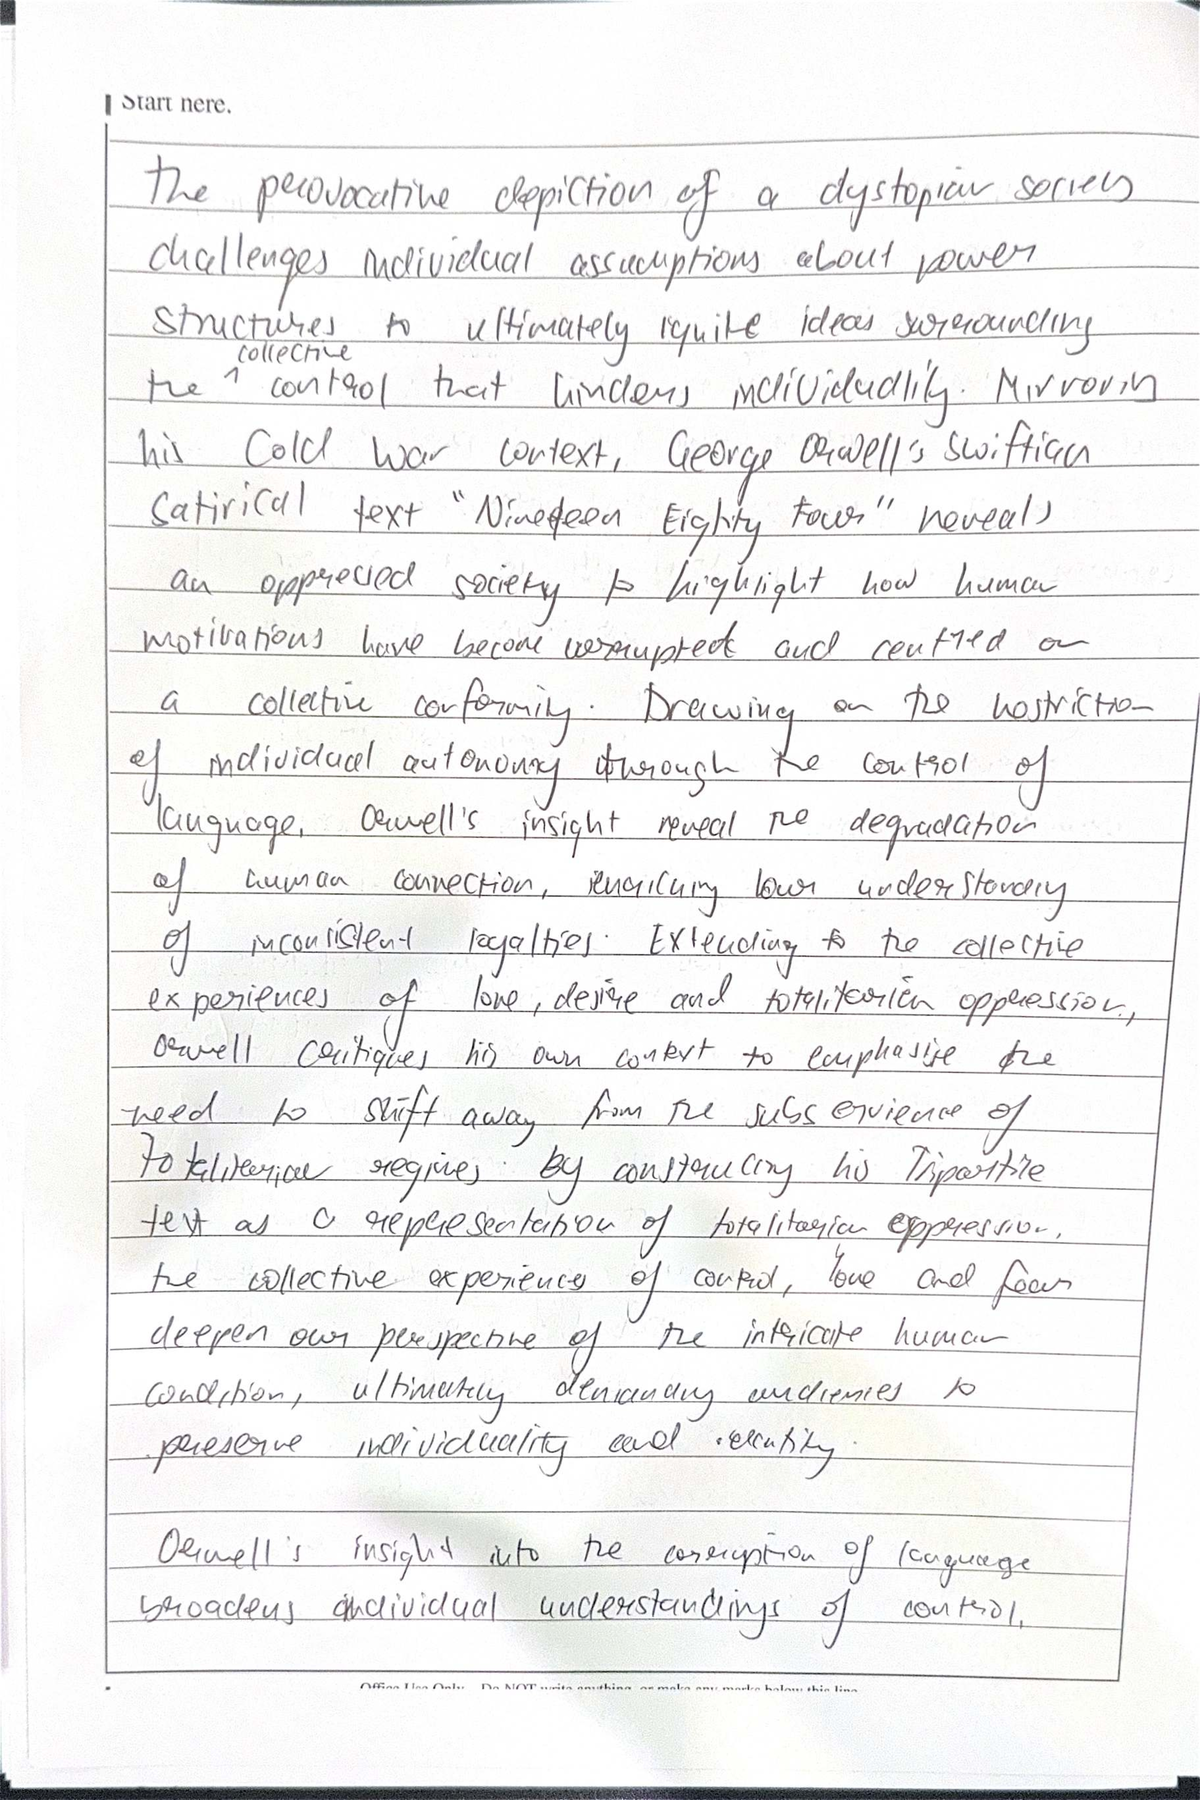 Start here.
The perovocative depiction of a dystopian society
challenges individual assumptions about power
structures to ultimately iquite ideas surrounding
collective
the ^ control that hinders individuality. Mirroring
his Cold War context, George Orwell's Swiftian
Satirical text "Nineteen Eighty Four" reveals
an oppressed society to highlight how human
motivations have become corrupted and centred on
a collective conformity. Drawing on the restriction
of individual autonomy through the control of
language, Orwell's insight reveal the degradation
of human connection, our understanding
of inconsistent loyalties. Extending to the collective
experiences of love, desire and totalitarian oppression,
Orwell critiques his own context to emphasise the
need to shift away from the subservience of
Totalitarian regimes. By constructing his Tripartite
text as a representation of totalitarian oppression,
the collective experiences of control, love and fear
deepen our perspective of the intricate human
condition, ultimately demanding audiences to
preserve individuality and identity.
Orwell's insight into the corruption of language
broadens individual understandings of control,
Office Use Only - Do NOT write anything, or make any marks below this line